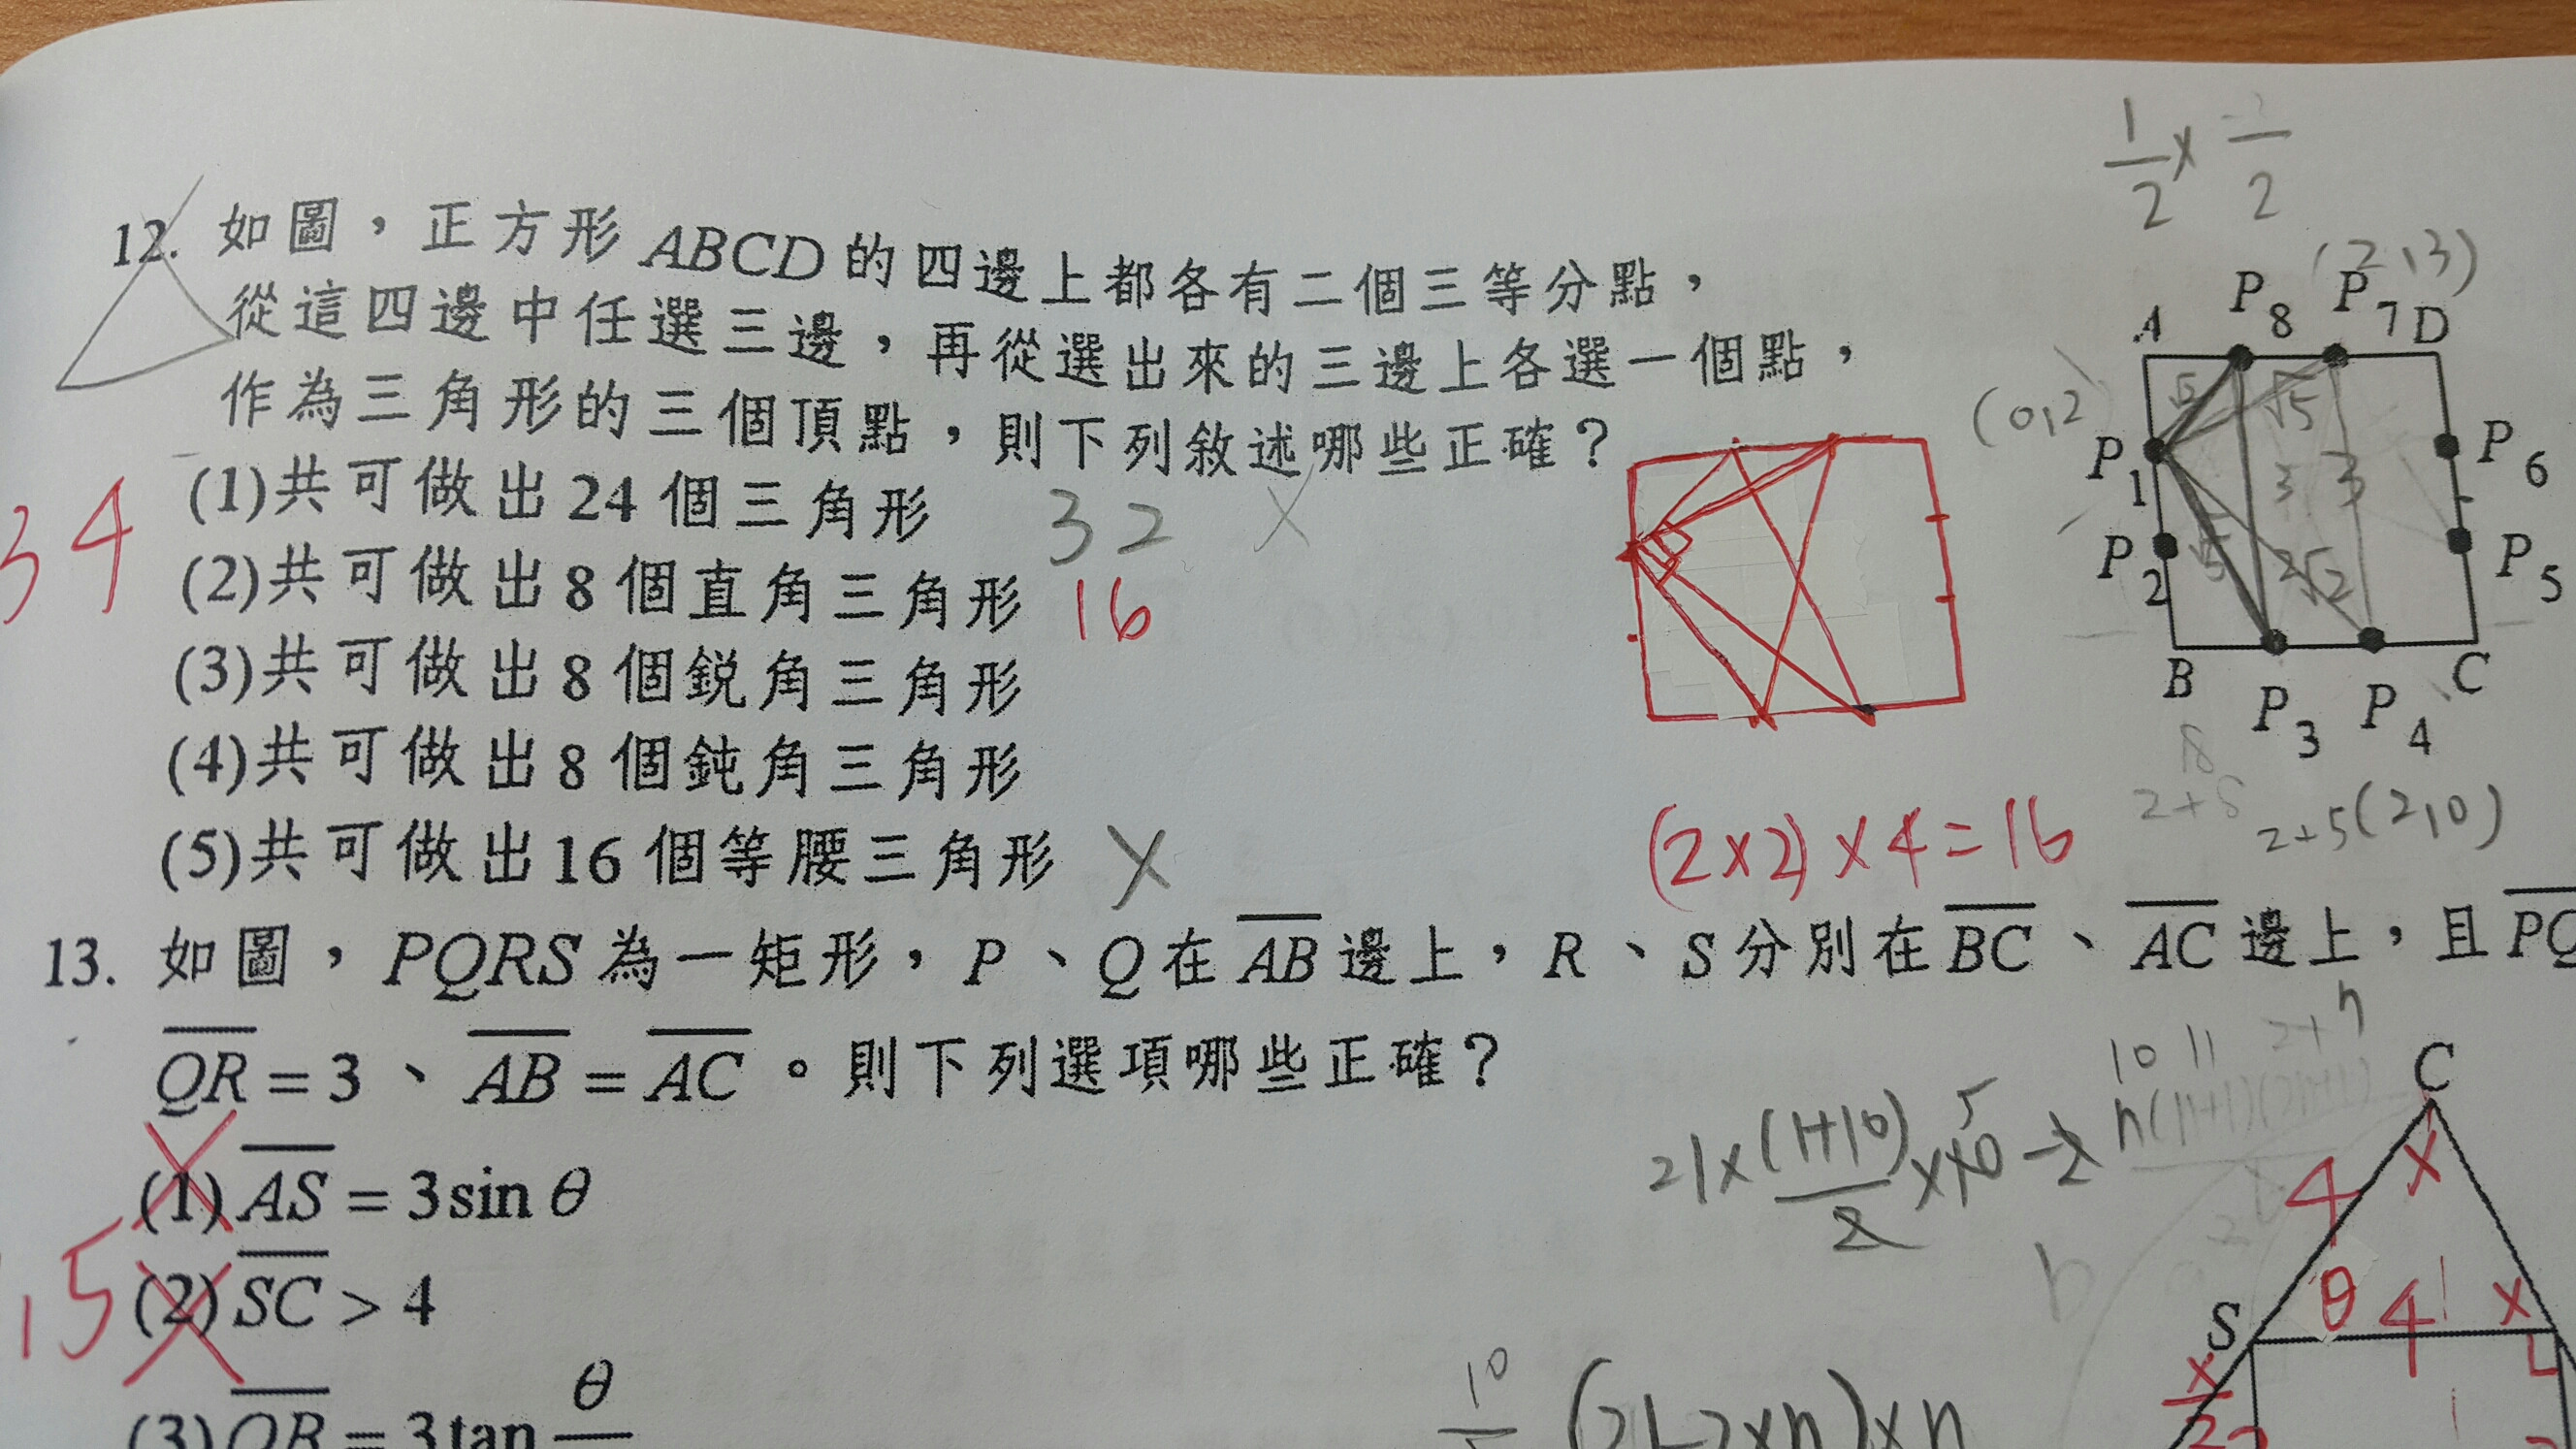 12. 如圖，正方形 ABCD 的四邊上都各有二個三等分點，
從這四邊中任選三邊，再從選出來的三邊上各選一個點，
作為三角形的三個頂點，則下列敘述哪些正確？
(1)共可做出 24 個三角形 32 X
(2)共可做出 8 個直角三角形 16
(3)共可做出 8 個銳角三角形
(4)共可做出 8 個鈍角三角形
(5)共可做出 16 個等腰三角形 X
34
1/2 x
2
(2,3)
A P8 P7 D
(0,2
√5
P1 P6
3 3
P2 √5 2√2 P5
B P3 P4 C
2+5(2,0)
(2x2)x4=16
13. 如圖，PQRS 為一矩形，P、Q 在 AB 邊上，R、S 分別在 BC、AC 邊上，且 PQ
QR = 3、AB = AC。則下列選項哪些正確？
(1) AS = 3 sin θ
15
(2) SC > 4
(3) QB = 3 tan θ
21x (1+10)/2
10 11
C
4 X
S θ 4 X
10